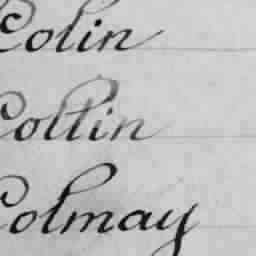 Colin
Collin
Colmay